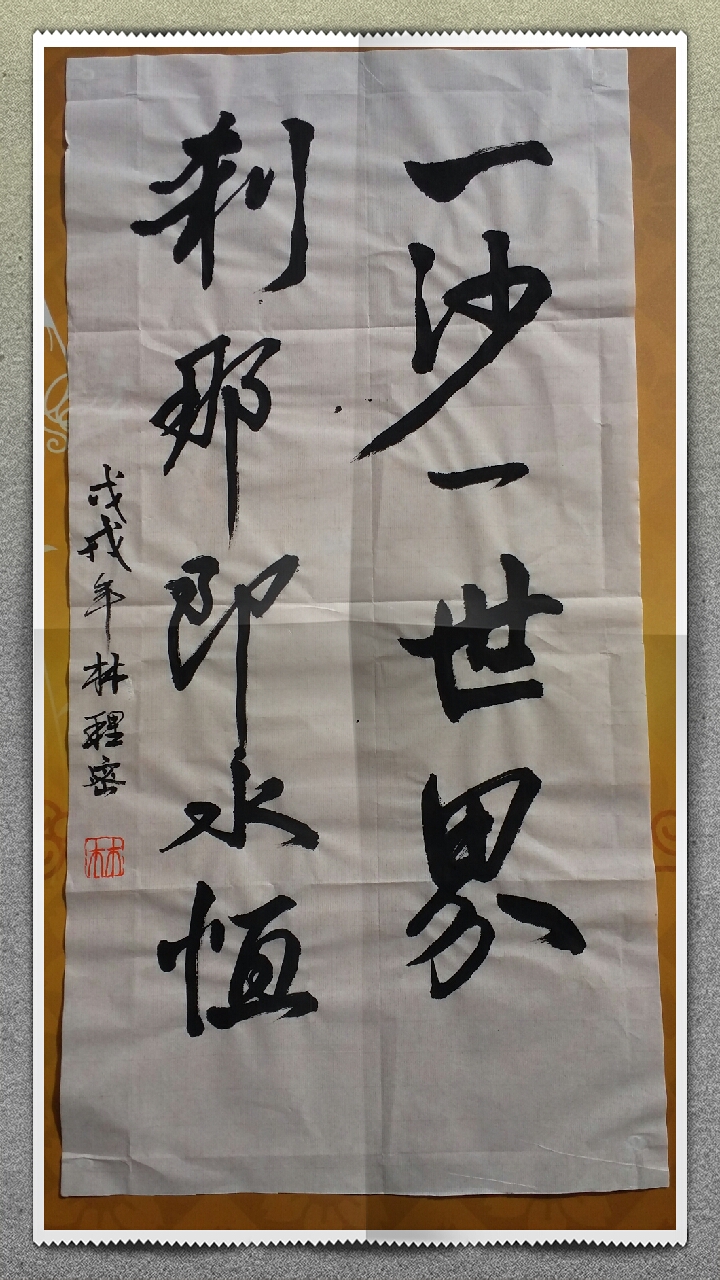 一沙一世界
刹那即永恒
戊戌年林程密
林